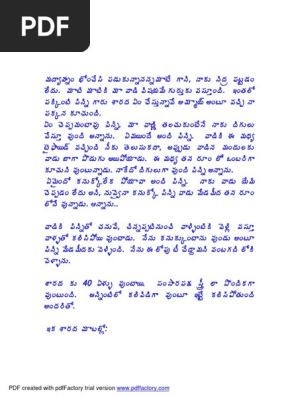 PDF
మధ్యాహ్నం భోంచేసి పడుకున్నానన్నమాటే గాని, నాకు నిద్ర పట్టడం
లేదు. మాటి మాటికి మా వాడి విషయమే గుర్తుకు వస్తూంది. ఇంతలో
పక్కింటి పిన్ని గారు శారద ఏం చేస్తున్నావే అమ్మాజీ అంటూ వచ్చి నా
పక్కన కూచుంది.
ఏం చెప్పమంటావు పిన్ని, మా వాణ్ణి తలచుకుంటేనే నాకు దిగులు
వేస్తూ వుంది అన్నాను. ఏమయిందే అంది పిన్ని. వాడికి ఈ మధ్య
టైఫాయిడ్ వచ్చింది నీకు తెలుసుకదా, అప్పుడు వాడిన మందులకు
వాడు బాగా పొడుగు అయిపోయాడు. ఈ మధ్య తన రూం లో ఒంటరిగా
కూచుని వుంటున్నాడు. నాకేదో దిగులుగా వుంది పిన్ని అన్నాను.
ఏమైందో కనుక్కోలేక పోయావా అంది పిన్ని. నాకు వాడు యేమి
చెప్పడం లేదు అని, నువ్వైనా కనుక్కో పిన్ని వాడు మేడమీద తన రూం
లోనే వున్నాడు. అన్నాను..
వాడికి పిన్నితో చనువే, చిన్నప్పటినుంచి వాళ్ళింటికి వెళ్లి వస్తూ
వాళ్ళతో కలిసిపోయి వుంటాడు. నేను కనుక్కుంటాను వుండు అంటూ
పిన్ని మేడమీదకు వెళ్ళింది. నేను ఈ లోపు టీ చేద్దామని వంటగది లోకి
వెళ్ళాను.
శారద కు 40 ఏళ్ళు వుంటాయి. సంసారపక్ష స్త్రీ లా పొందికగా
వుంటుంది. అన్నింటిలో కలివిడిగా వుంటూ ఇట్టే కలిసిపోతుంది
అందరితో.
ఇక శారద మాటల్లో:
PDF created with pdfFactory trial version www.pdffactory.com